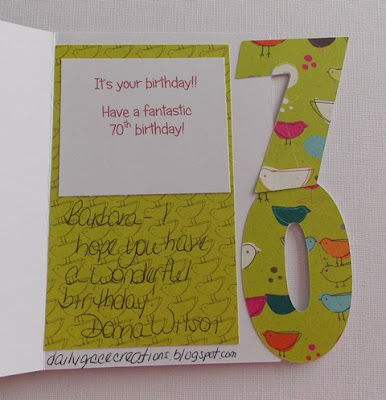 It's your birthday!!
Have a fantastic
70th birthday!
70
Barbara - I
hope you have
a wonderful
birthday
Donna Wilson
dailygracecreations.blogspot.com